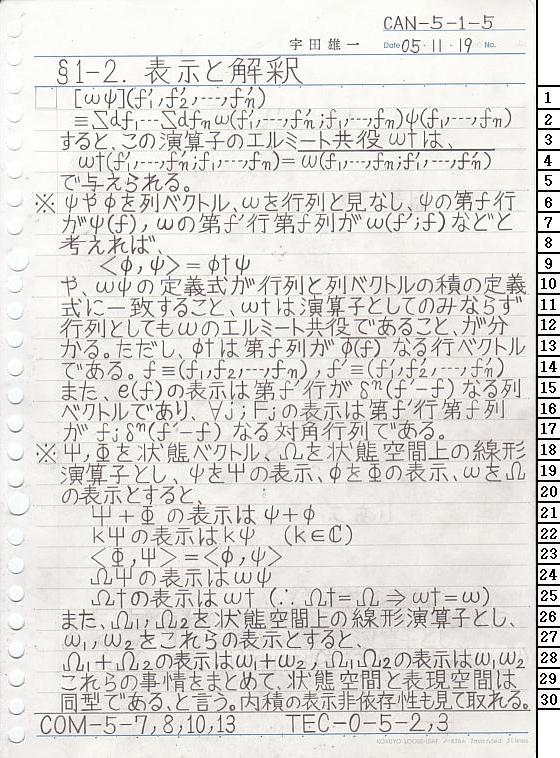 CAN-5-1-5
宇田雄一 Date 05・11・19 No.
§1-2. 表示と解釈
[ωψ](f'₁,f'₂,…,f'ₙ)
≡∑df₁…∑dfₙω(f'₁,…,f'ₙ;f₁,…,fₙ)ψ(f₁,…,fₙ)
すると、この演算子のエルミート共役ω†は、
ω†(f'₁,…,f'ₙ;f₁,…,fₙ)=ω(f₁,…,fₙ;f'₁,…,f'ₙ)
で与えられる。
※ψやφを列ベクトル、ωを行列と見なし、ψの第f行
がψ(f)，ωの第f'行第f列がω(f';f)などと
考えれば、
<φ,ψ>=φ†ψ
や、ωψの定義式が行列と列ベクトルの積の定義
式に一致すること、ω†は演算子としてのみならず
行列としてもωのエルミート共役であること、が分
かる。ただし、φ†は第f列がφ(f)なる行ベクトル
である。f≡(f₁,f₂,…,fₙ)，f'≡(f'₁,f'₂,…,f'ₙ)
また、e(f)の表示は第f'行がδⁿ(f'-f)なる列
ベクトルであり、∀j;Fⱼの表示は第f'行第f列
がfⱼδⁿ(f'-f)なる対角行列である。
※Ψ,Φを状態ベクトル、Ωを状態空間上の線形
演算子とし、ψをΨの表示、φをΦの表示、ωをΩ
の表示とすると、
Ψ+Φの表示はψ+φ
kΨの表示はkψ (k∈ℂ)
<Φ,Ψ>=<φ,ψ>
ΩΨの表示はωψ
Ω†の表示はω† (∴Ω†=Ω⇒ω†=ω)
また、Ω₁,Ω₂を状態空間上の線形演算子とし、
ω₁,ω₂をこれらの表示とすると、
Ω₁+Ω₂の表示はω₁+ω₂，Ω₁Ω₂の表示はω₁ω₂
これらの事情をまとめて、状態空間と表現空間は
同型である、と言う。内積の表示非依存性も見て取れる。
COM-5-7,8,10,13 TEC-0-5-2,3
1
2
3
4
5
6
7
8
9
10
11
12
13
14
15
16
17
18
19
20
21
22
23
24
25
26
27
28
29
30